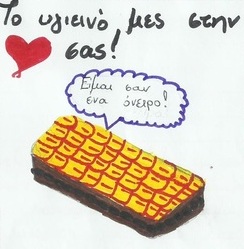 Το υγιεινό μες στην
σας!
Είμαι σαν
ενα όνειρο!